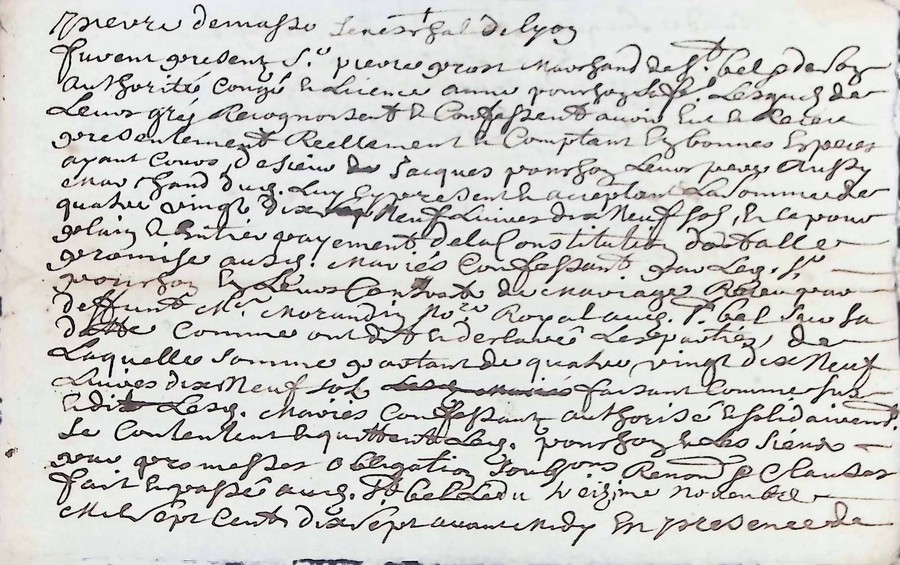 pierre demasso Seneschal de lyon
furent present Sr. pierre grost Marchand de St. bel & de Son
authorité Congé & Licence anne ponchon Lesquels de
Leurs gré Recognoissent & Confessent avoir Eue & Receue
presentement Reellement & Comptant En bonnes Especes
ayant Cours, de Sieur Jacques ponchon Leur pere Aussy
Marchand dud. Luy Et present & acceptant La Somme de
quatre vingt dix Neuf Livres dix Neuf sols, Et ce pour
plain & Entier payement de la Constitution dotalle
promise ausd. Mariés Confessant par Led. Sr.
ponchon En Leur Contrat de Mariage Receu par
deffunt Me. Morandin No.re Royal aud. St. bel Sous Sa
datte Comme ont dit & declaré Lesparties, de
Laquelle Somme partant de quatre vingt dix Neuf
Livres dix Neuf sols faisant Comme Sus
Est dit Lesd. Mariés Confessant authorisé & solidairemt.
Se Contentent & quittent Led. ponchon & Les Siens
par promesses obligation Renon. & Clauses
fait & passé aud. St. bel Le du treizime novembre
Mil Sept Cent dix Sept avant Midy En presence de